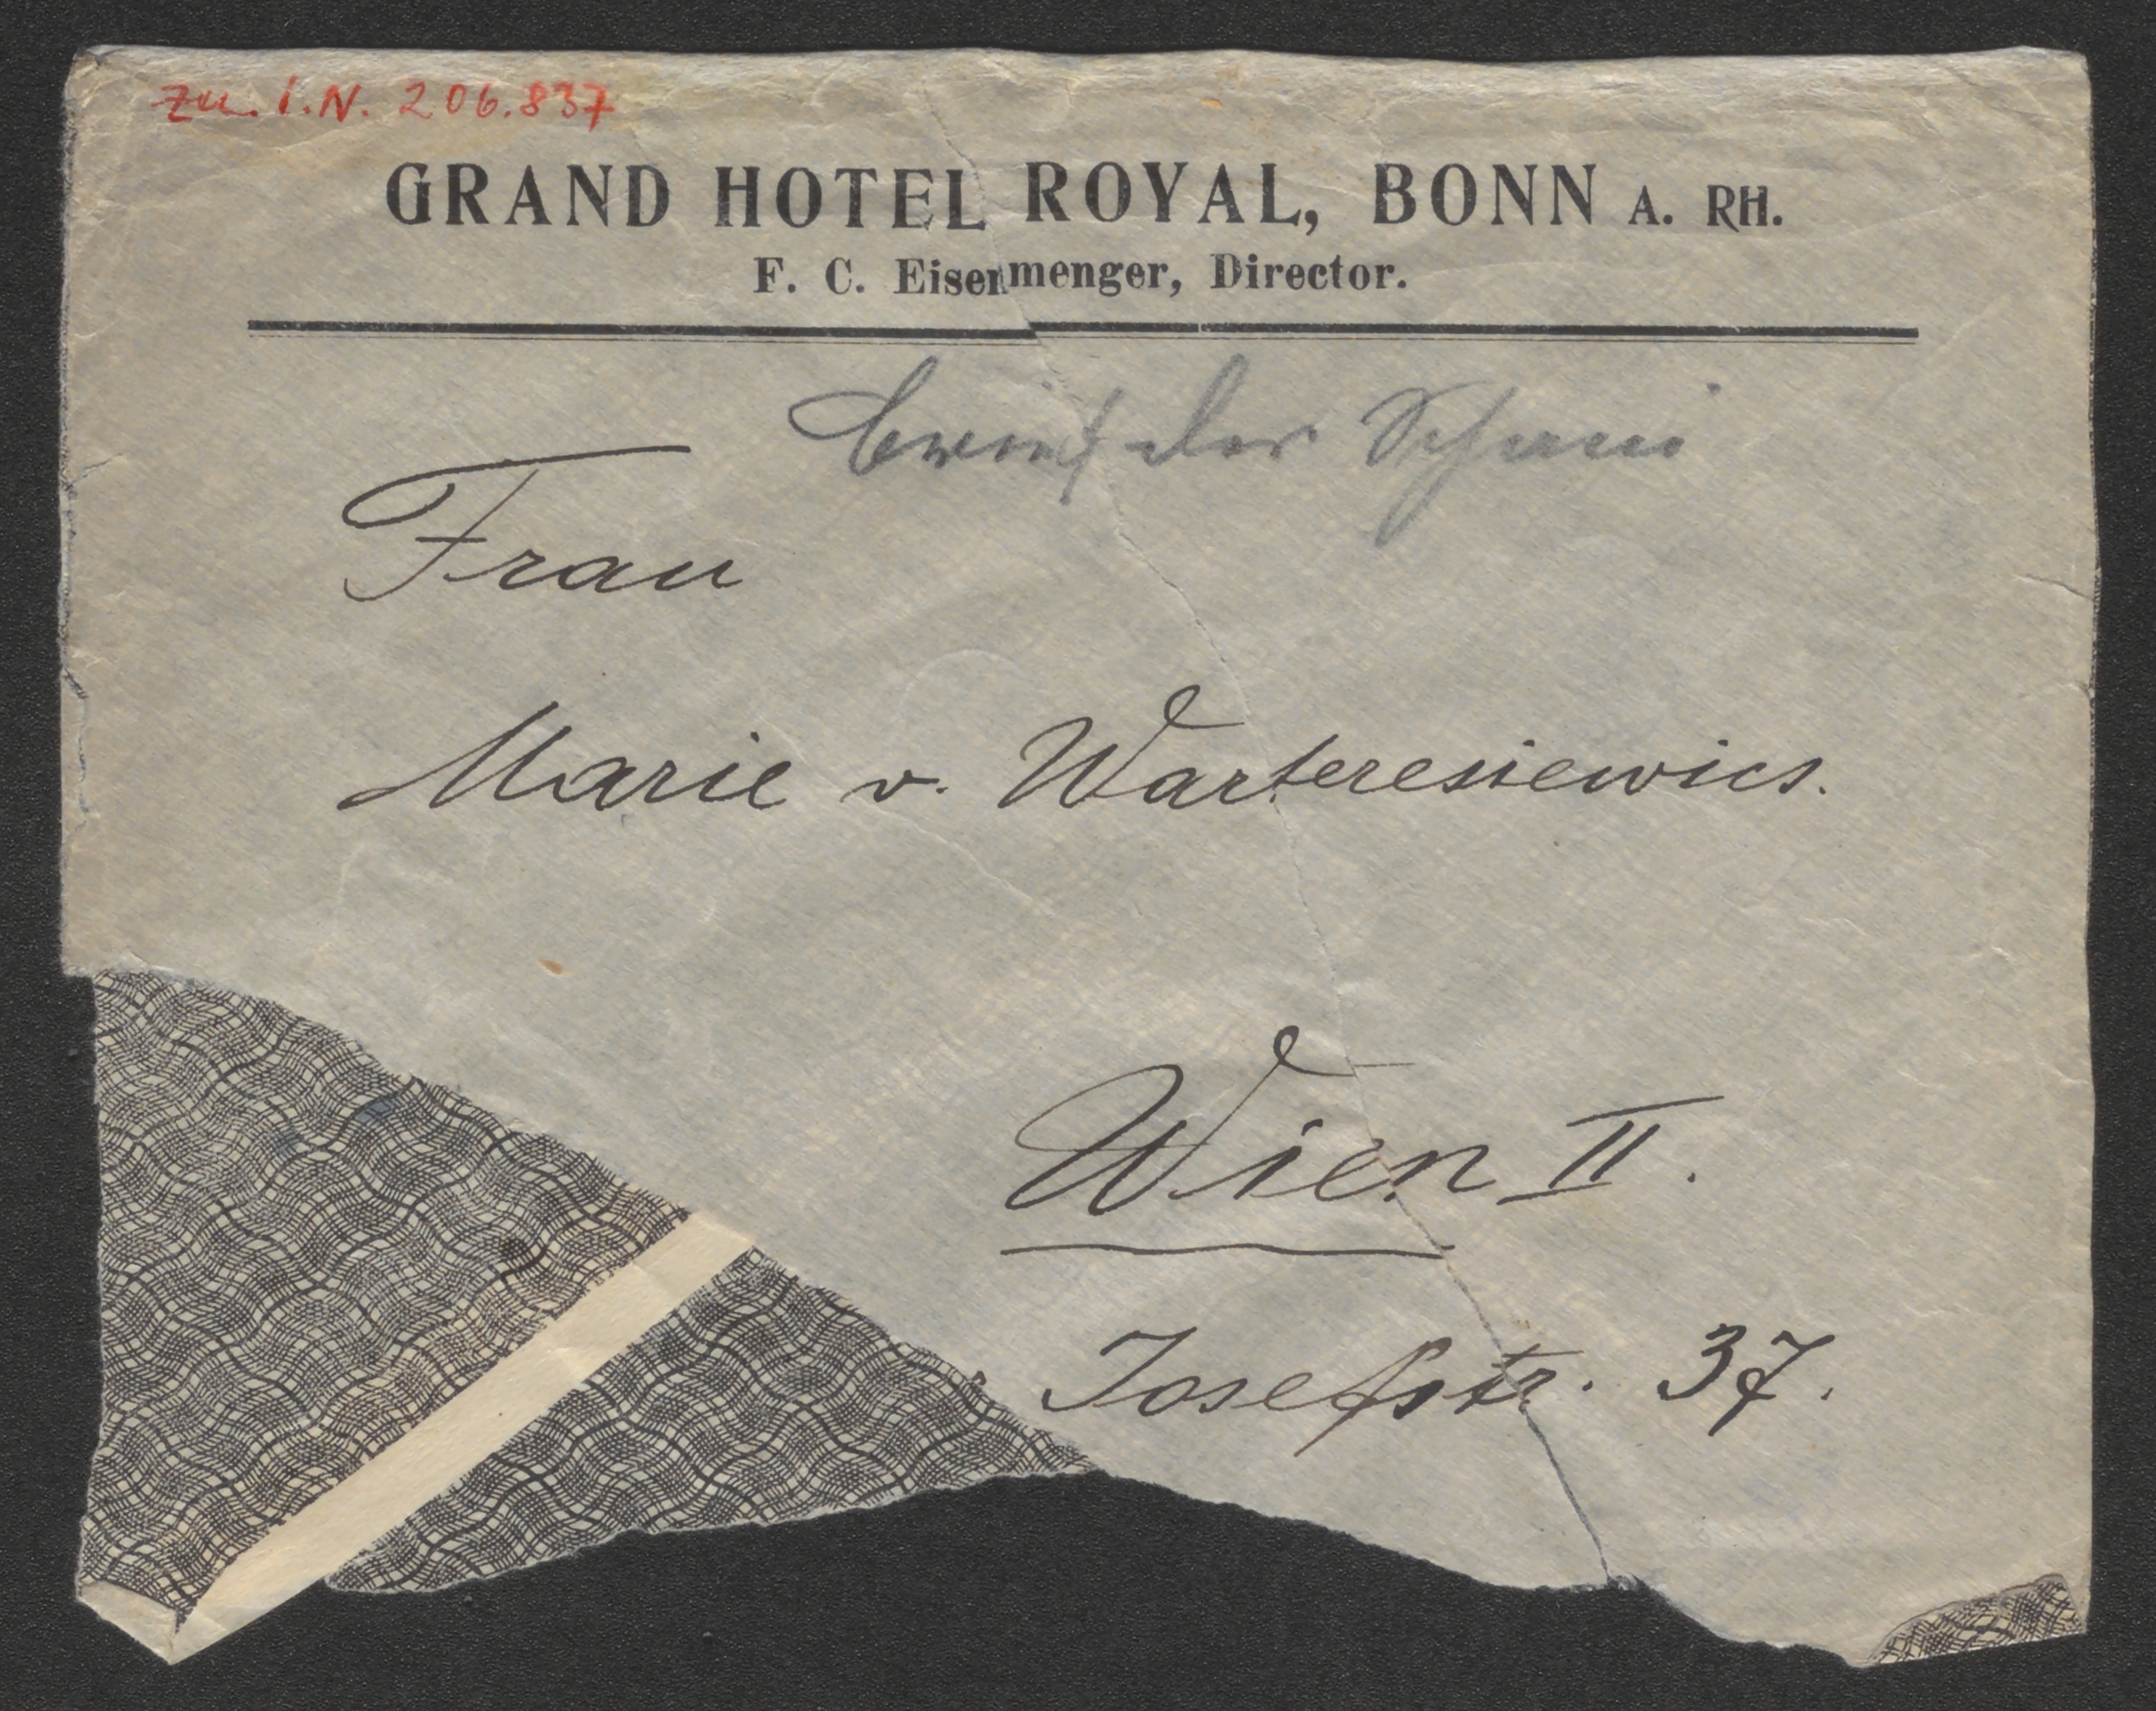 zu I.N. 206.837
GRAND HOTEL ROYAL, BONN A. RH.
F. C. Eisenmenger, Director.
brief der
Frau
Marie v. Warteresiewics.
Wien II.
Josefstr. 37.